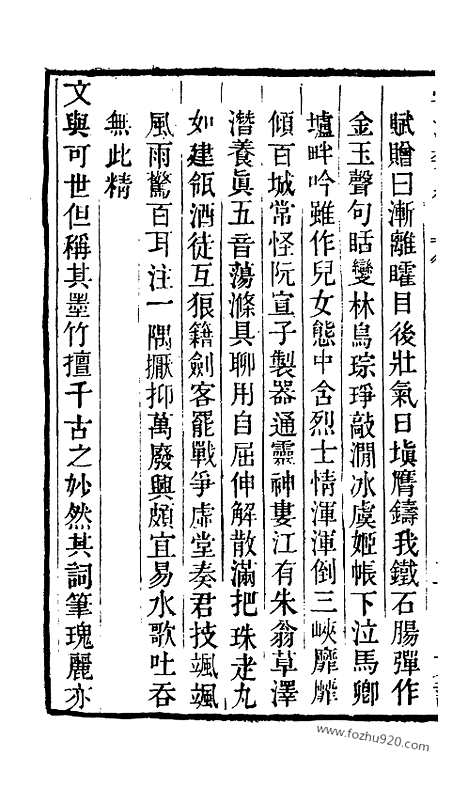 賦贈曰漸離矐目後壯氣日塡膺鑄我鐵石腸彈作
金玉聲句眍變林鳥琮琤敲澗冰虞姬帳下泣馬卿
壚畔吟雖作兒女態中含烈士情渾渾倒三峽靡靡
傾百城常怪阮宣子製器通靈神婁江有朱翁草澤
潛養眞五音蕩滌具聊用自屈伸解散滿把珠走丸
如建瓴酒徒互狼籍劍客罷戰爭虛堂奏君技颯颯
風雨驚百耳注一隅擫抑萬廢興頗宜易水歌吐吞
無此精
文與可世但稱其墨竹擅千古之妙然其詞筆瑰麗亦
www.fozhu920.com